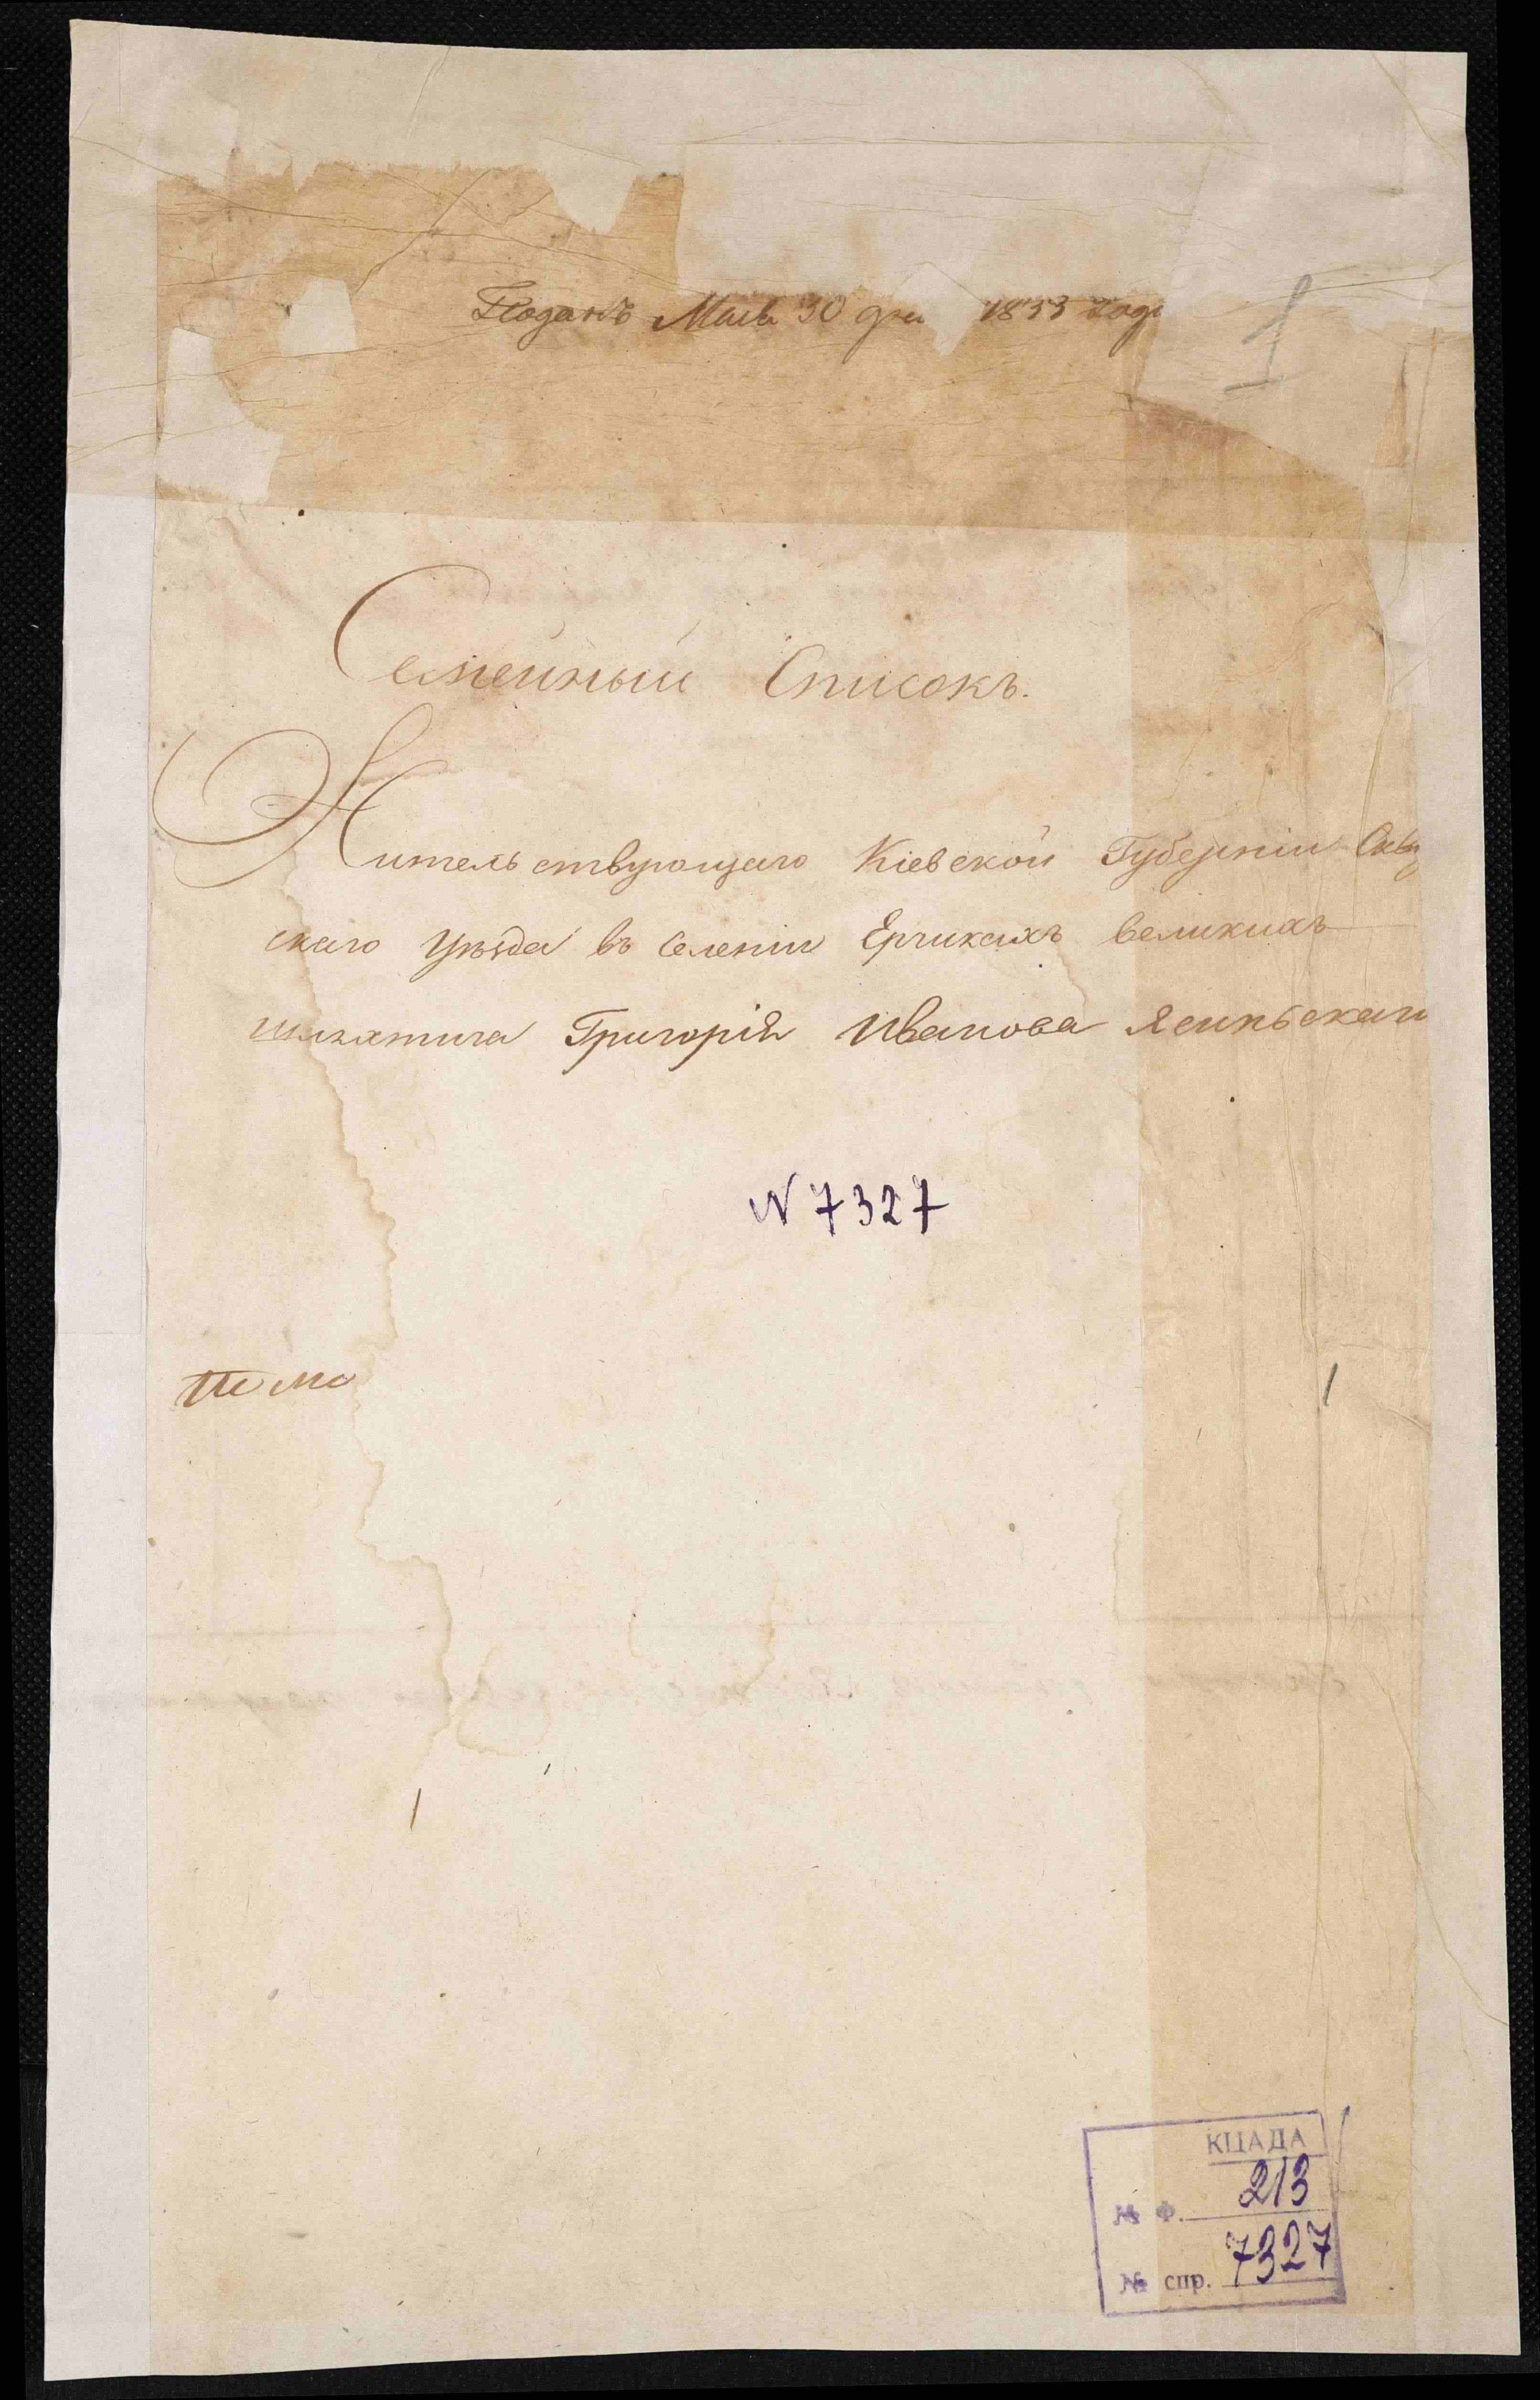 Поданъ Маія 30 дня 1833 года
1
Семейный Списокъ.
Жительствующаго Кіевской Губерніи Сквир
скаго Уѣзда въ Селеніи Ерчикахъ великихъ
шляхтича Григорія Иванова Ясиньскаго
N 7327
КЦАДА
№ Ф. 213
№ спр. 7327